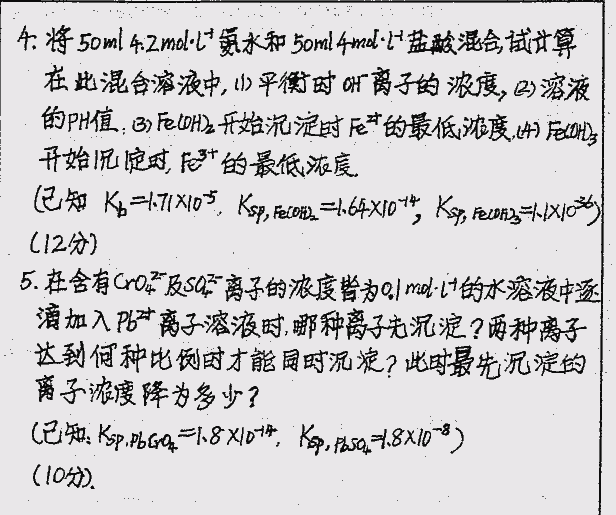 4. 将50ml 4.2mol·L⁻¹氨水和50ml 4mol·L⁻¹盐酸混合,试计算
在此混合溶液中,(1)平衡时OH⁻离子的浓度,(2)溶液
的PH值.(3)Fe(OH)₂开始沉淀时Fe²⁺的最低浓度.(4)Fe(OH)₃
开始沉淀时,Fe³⁺的最低浓度.
(已知 Kb=1.71×10⁻⁵, Ksp,Fe(OH)₂=1.64×10⁻¹⁴, Ksp,Fe(OH)₃=1.1×10⁻³⁶)
(12分)
5. 在含有CrO₄²⁻及SO₄²⁻离子的浓度皆为0.1mol·L⁻¹的水溶液中逐
滴加入Pb²⁺离子溶液时,哪种离子先沉淀?两种离子
达到何种比例时才能同时沉淀?此时最先沉淀的
离子浓度降为多少?
(已知:Ksp,PbCrO₄=1.8×10⁻¹⁴, Ksp,PbSO₄=1.8×10⁻⁸)
(10分).